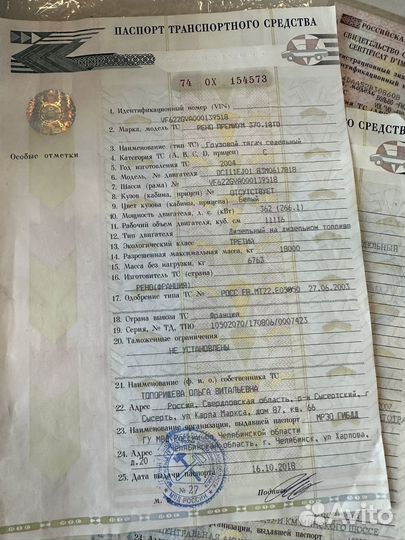 ПАСПОРТ ТРАНСПОРТНОГО СРЕДСТВА
РОССИЙСКАЯ
СВИДЕТЕЛЬСТВО О
74 ОХ 154573
Особые отметки
1. Идентификационный номер (VIN)
VF622GVA000139518
2. Марка, модель ТС РЕНО ПРЕМИУМ 370.18TD
3. Наименование (тип ТС) Грузовой тягач седельный
4. Категория ТС (А, В, С, D, прицеп) C
5. Год изготовления ТС 2004
6. Модель, № двигателя DCI11EJ01 83M0617818
7. Шасси (рама) № VF622GVA000139518
8. Кузов (кабина, прицеп) № ОТСУТСТВУЕТ
9. Цвет кузова (кабины, прицепа) Белый
10. Мощность двигателя, л. с. (кВт) 362 (266.1)
11. Рабочий объем двигателя, куб. см 11116
12. Тип двигателя Дизельный на дизельном топливе
13. Экологический класс ТРЕТИЙ
14. Разрешенная максимальная масса, кг 18000
15. Масса без нагрузки, кг 6763
16. Изготовитель ТС (страна)
РЕНО(ФРАНЦИЯ)
17. Одобрение типа ТС № РОСС FR.МТ22.Е03050 27.06.2003
18. Страна вывоза ТС Франция
19. Серия, № ТД, ТПО 10502070/170806/0007423
20. Таможенные ограничения
НЕ УСТАНОВЛЕНЫ
21. Наименование (ф. и. о.) собственника ТС
ТОПОРИЩЕВА ОЛЬГА ВИТАЛЬЕВНА
22. Адрес Россия, Свердловская область, р-н Сысертский, г
Сысерть, ул Карла Маркса, дом 87, кв. 66
23. Наименование организации, выдавшей паспорт МРЭО ГИБДД
ГУ МВД России по Челябинской области
24. Адрес Челябинская область, г. Челябинск, ул Харлова,
д.20
25. Дата выдачи паспорта 16.10.2018
М. Подпись
№ 27
Avito